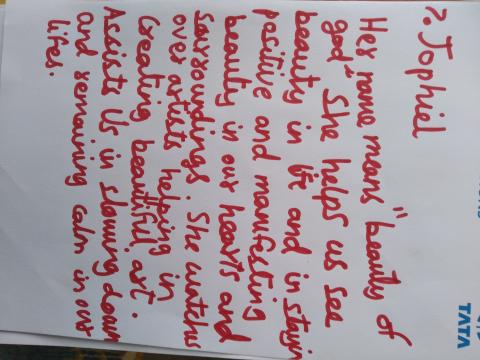 7. Jophiel
Her name means "beauty of
god" She helps us see
beauty in life and in stayin
positive and manifesting
beauty in our hearts and
surroundings. She watches
over artists helping in
Creating beautiful art.
Assists Us in slowing down
and remaining calm in our
lifes.
TATA